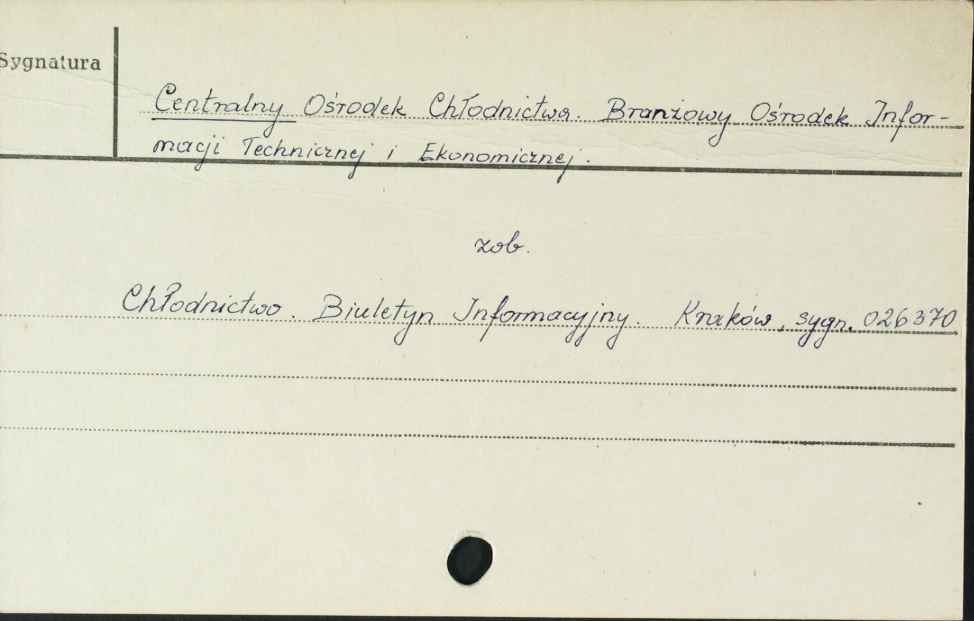 Sygnatura
Centralny Ośrodek Chłodnictwa. Branżowy Ośrodek Infor-
macji Technicznej i Ekonomicznej.
zob.
Chłodnictwo. Biuletyn Informacyjny. Kraków, sygn. 026370